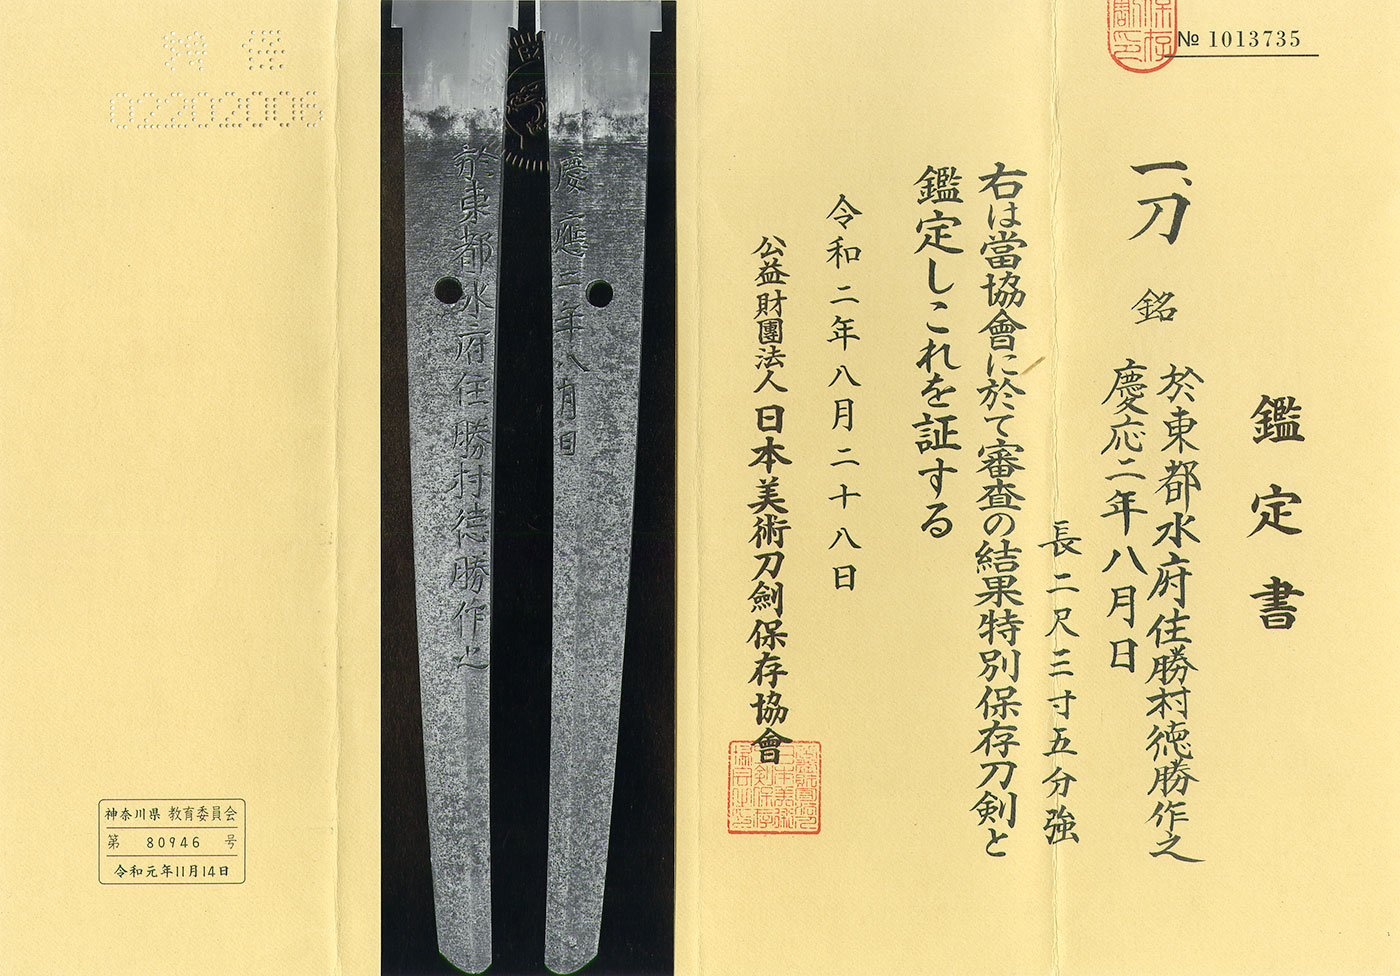 № 1013735
鑑定書
一、刀 銘 於東都水府住勝村徳勝作之
慶応二年八月日
長二尺三寸五分強
右は當協會に於て審査の結果特別保存刀剣と
鑑定しこれを証する
令和二年八月二十八日
公益財團法人 日本美術刀劍保存協會
慶應二年八月日
於東都水府住勝村徳勝作之
02202006
神奈川県 教育委員会
第 80946 号
令和元年11月14日